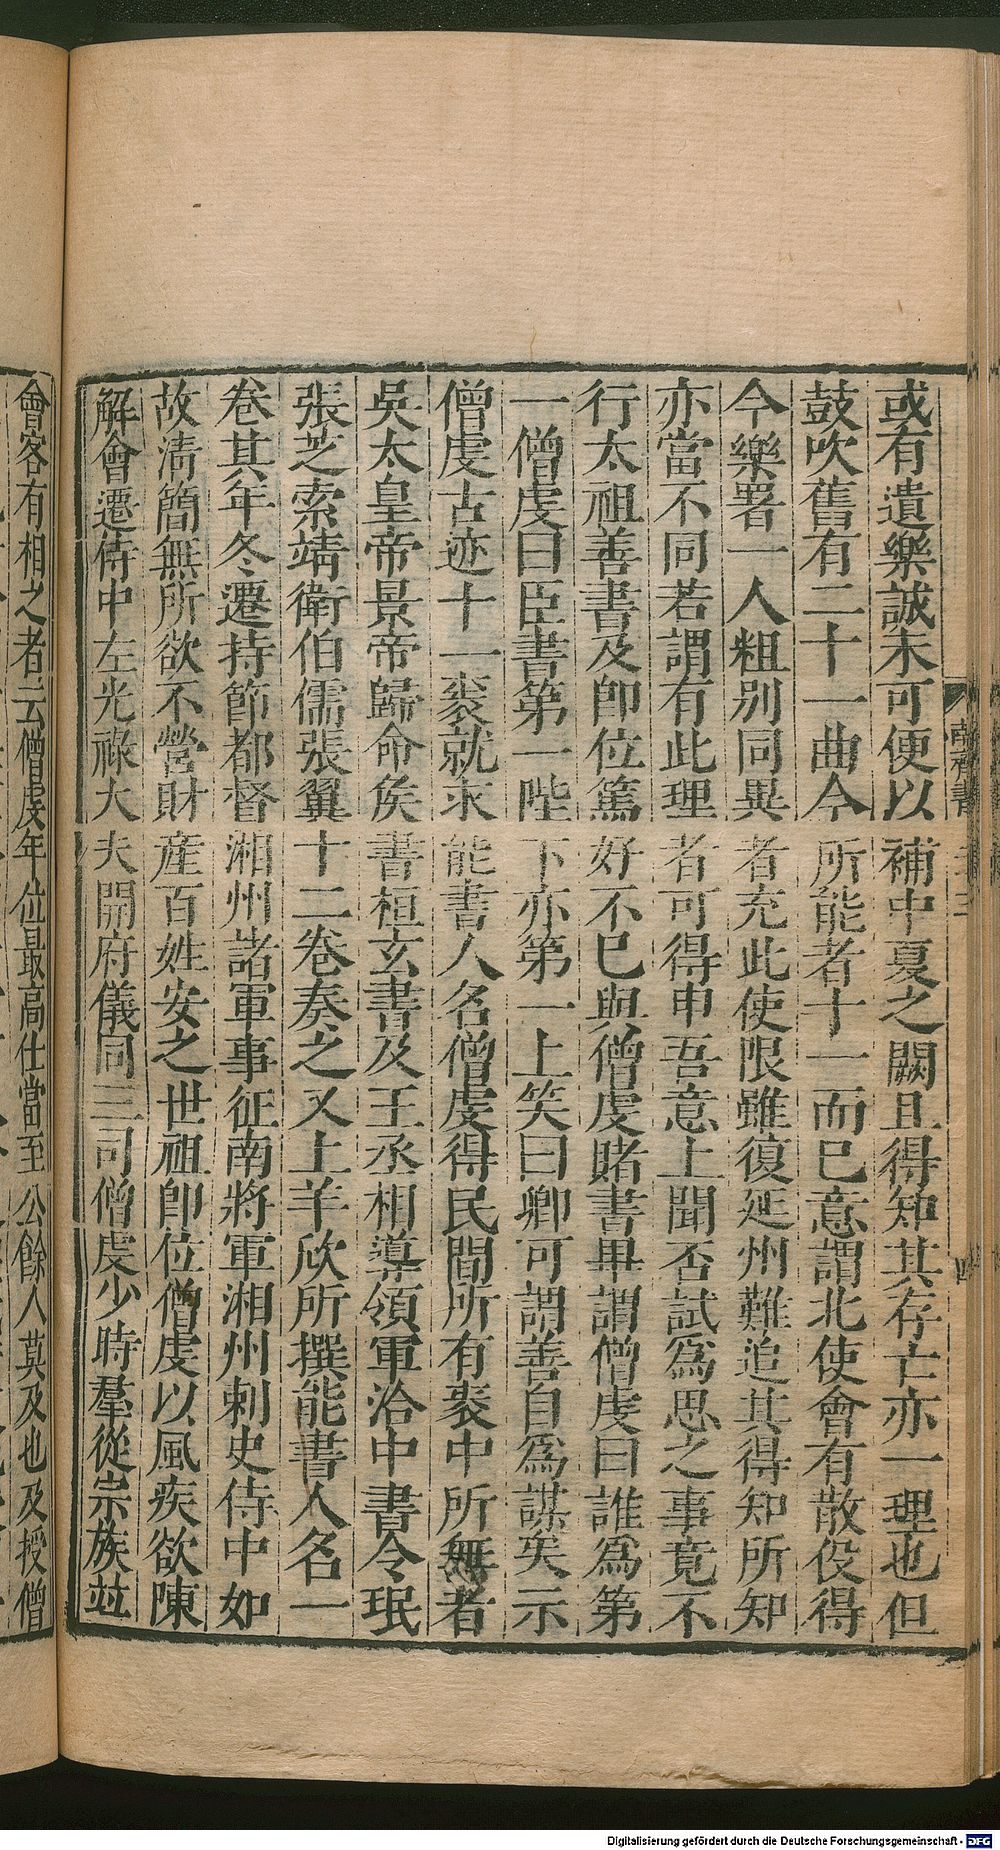 或有遺樂誠未可便以補中夏之闕且得知其存亡亦一理也但
鼓吹舊有二十一曲今所能者十一而已意謂北使會有散役得
今樂署一人粗別同異者充此使限雖復延州難追其得知所知
亦當不同若謂有此理者可得申吾意上聞否試為思之事竟不
行太祖善書及即位篤好不已與僧虔賭書畢謂僧虔曰誰為第
一僧虔曰臣書第一陛下亦第一上笑曰卿可謂善自為謀矣示
僧虔古迹十一袠就求能書人名僧虔得民間所有袠中所無者
吳太皇帝景帝歸命矦書桓玄書及王丞相導領軍洽中書令珉
張芝索靖衛伯儒張翼十二卷奏之又上羊欣所撰能書人名一
卷其年冬遷持節都督湘州諸軍事征南將軍湘州刺史侍中如
故淸簡無所欲不營財產百姓安之世祖即位僧虔以風疾欲陳
解會遷侍中左光祿大夫開府儀同三司僧虔少時羣從宗族並
會客有相之者云僧虔年位最高仕當至公餘人莫及也及授僧
南齊書
四
Digitalisierung gefördert durch die Deutsche Forschungsgemeinschaft - DFG